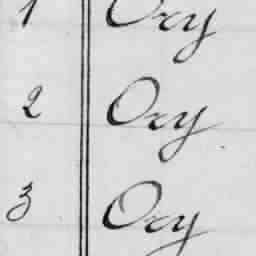 1 Ory
2 Ory
3 Ory